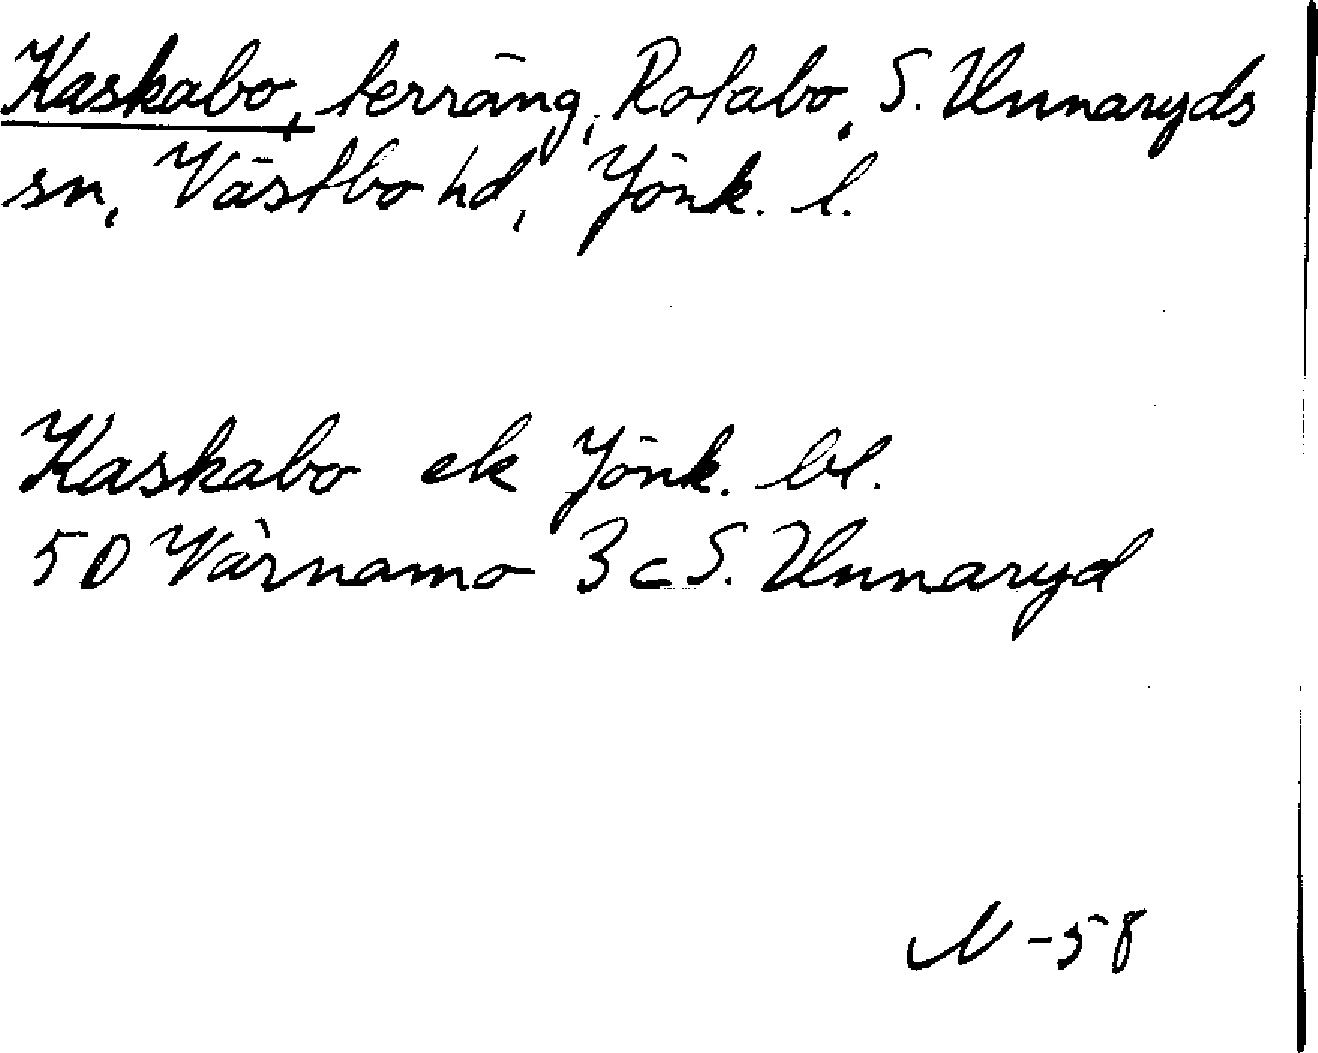 Kaskabo, terräng, Rotabo, S. Unnaryds
sn, Västbo hd, Jönk. l.
Kaskabo ek Jönk. bl.
5D Värnamo 3c S. Unnaryd
N -58